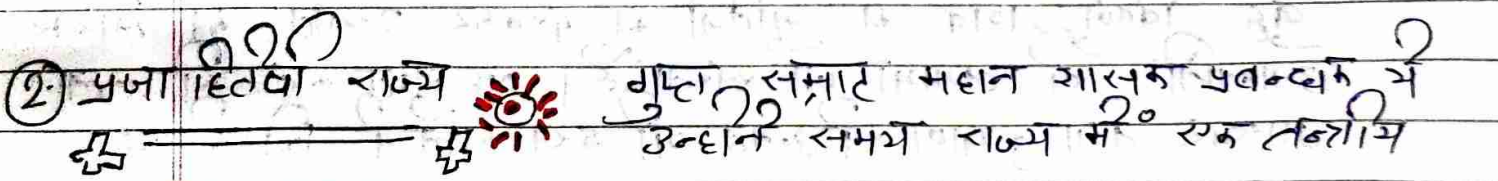 (2.) प्रजा हितैषी राज्य गुप्त सम्राट महान शासक प्रबन्धक थे
उन्होंने समय राज्य में एक तन्त्रीय